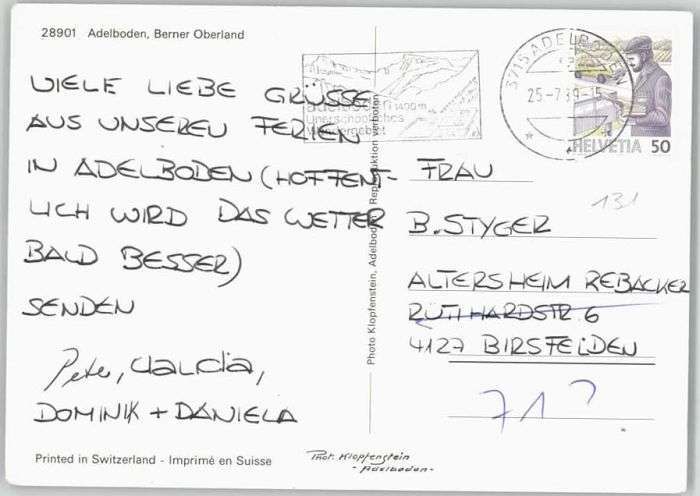 28901 Adelboden, Berner Oberland
VIELE LIEBE GRÜSSE
AUS UNSEREN FERIEN
IN ADELBODEN (HOFFENT-
LICH WIRD DAS WETTER
BALD BESSER)
SENDEN
Peter, Claudia,
DOMINIK + DANIELA
Printed in Switzerland - Imprimé en Suisse
Photo Klopfenstein, Adelboden, Reproduktion verboten
Phot. Klopfenstein
- Adelboden -
Adelboden 1400m
Unerschöpfliches
Wandergebiet
3715 ADELBODEN
25-7.89-15
HELVETIA 50
131
FRAU
B. STYGER
ALTERSHEIM REBACKER
RÜTTIHARDSTR 6
4127 BIRSFELDEN
71?